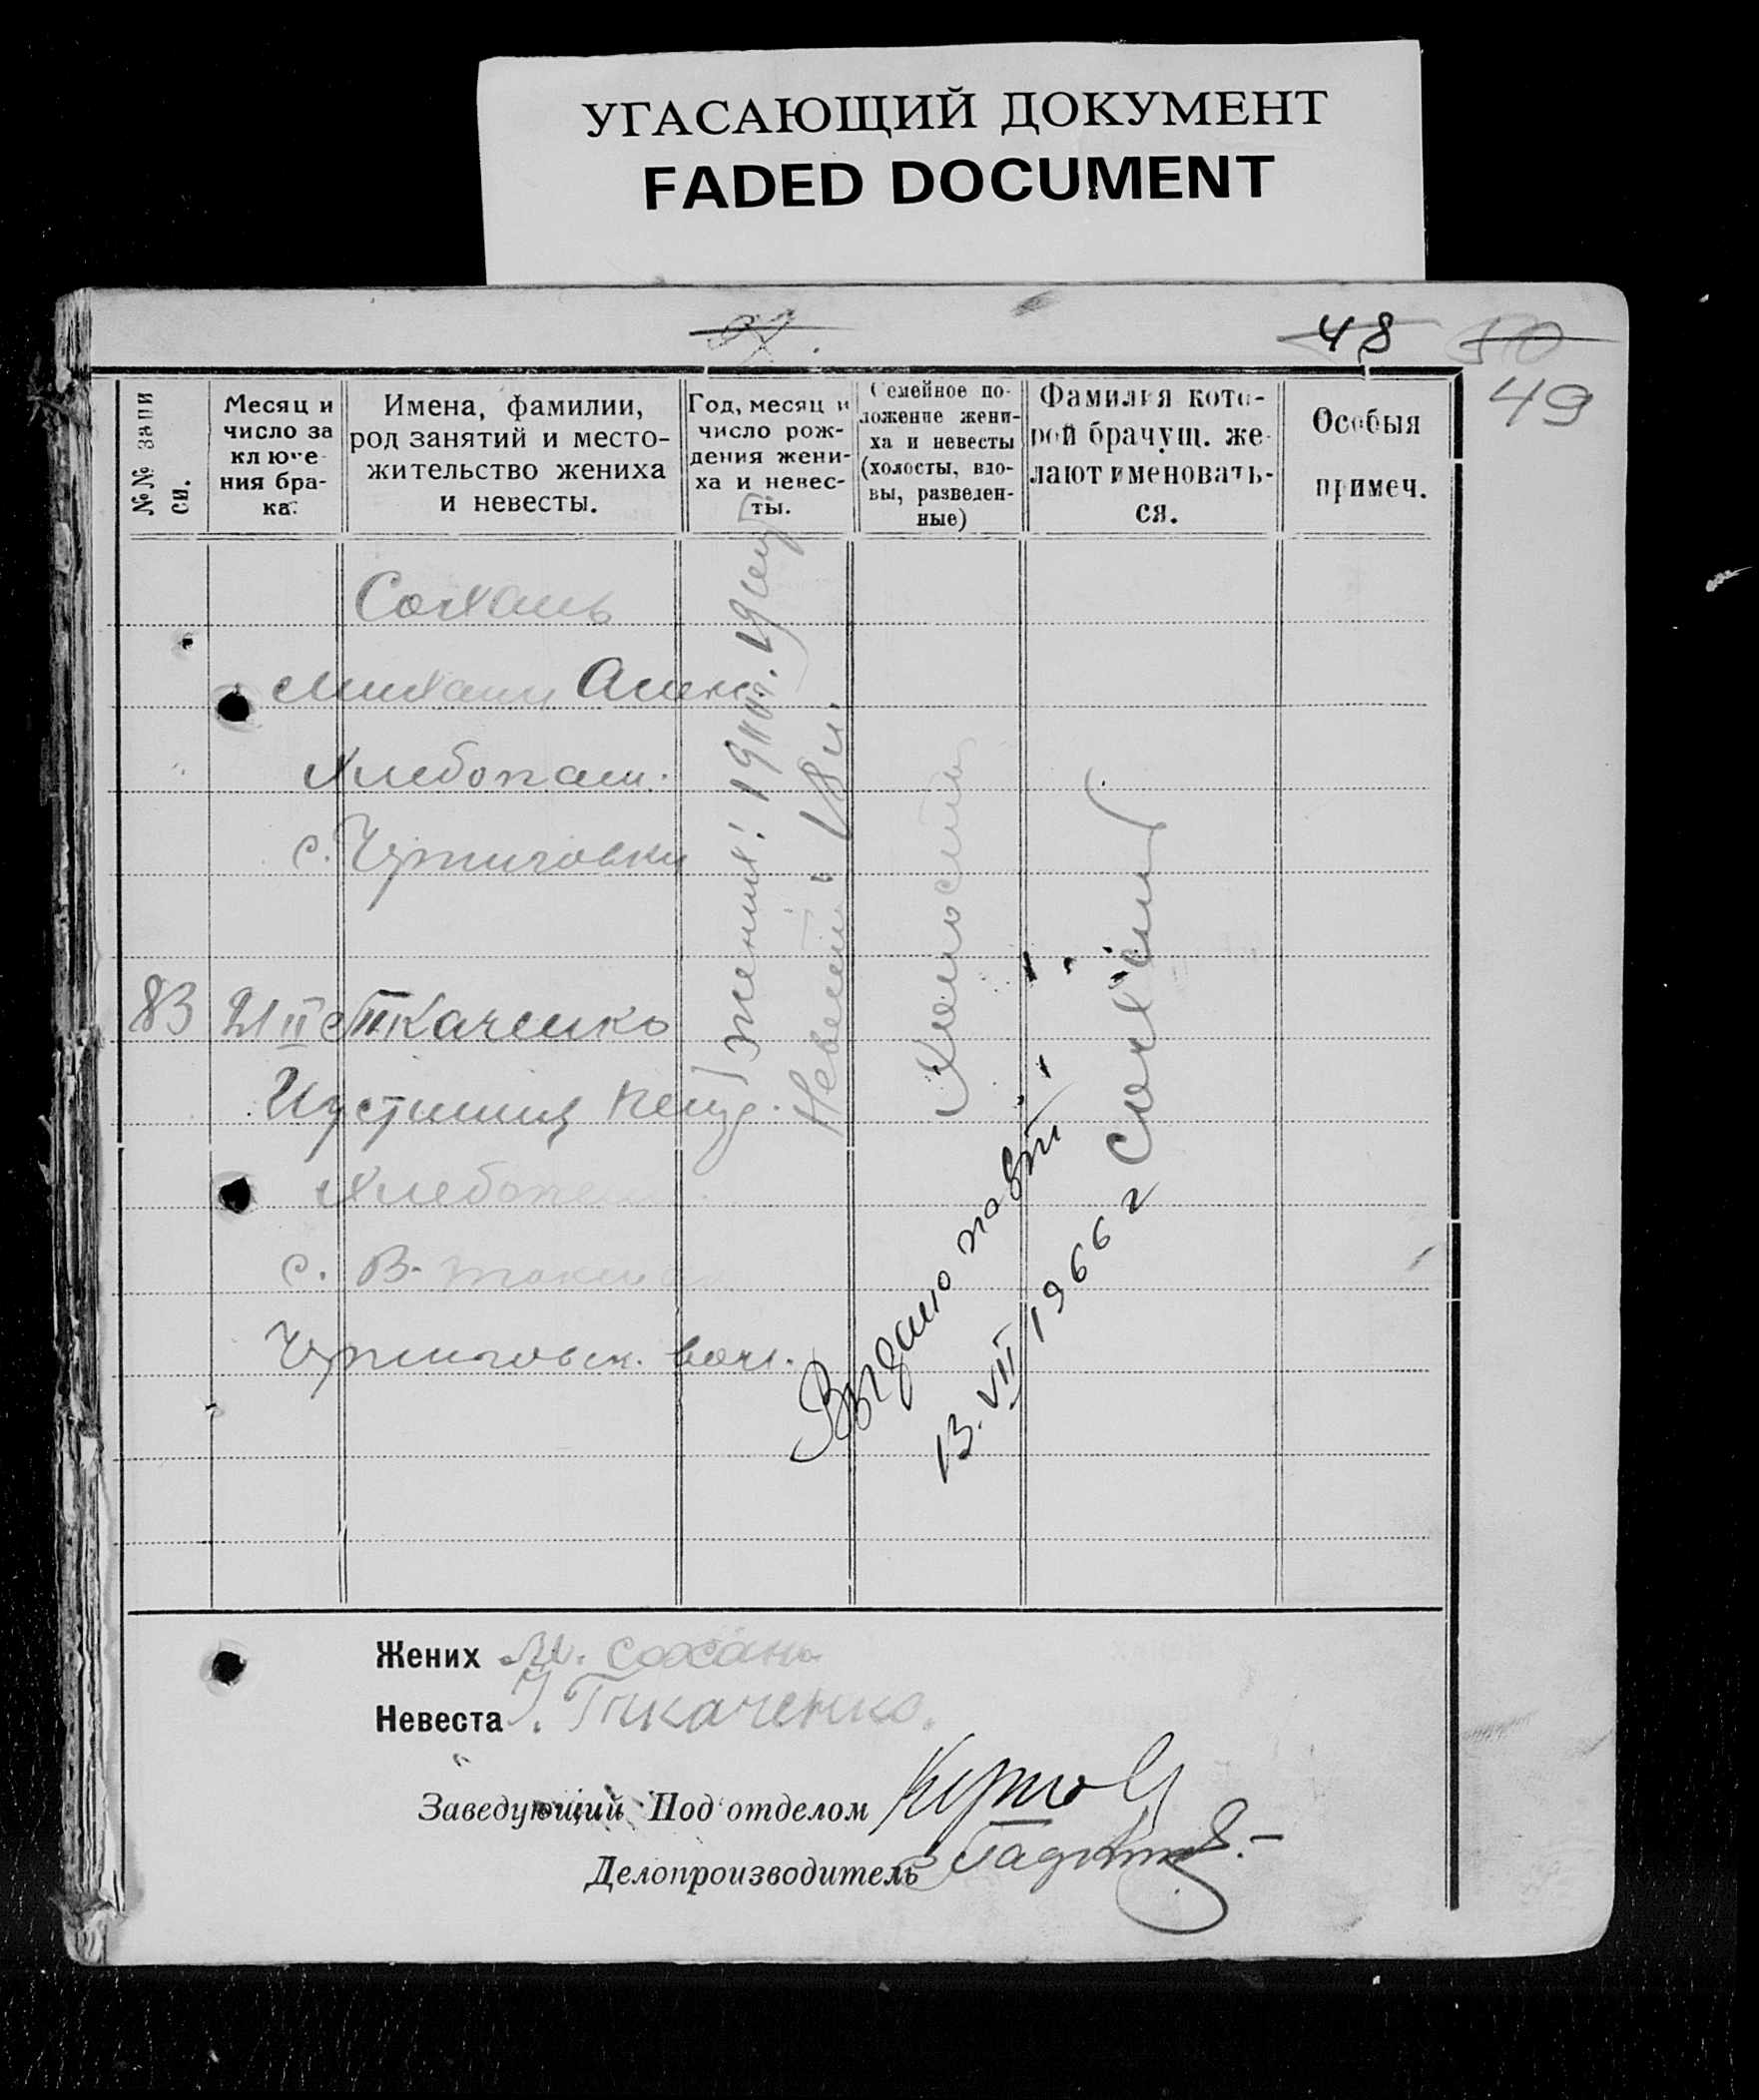 УГАСАЮЩИЙ ДОКУМЕНТ
FADED DOCUMENT
48
49
№№ запи
си.
Месяц и
число за
ключе
ния бра-
ка.
Имена, фамилии,
род занятий и место-
жительство жениха
и невесты.
Год, месяц и
число рож-
дения жени-
ха и невес-
ты.
Семейное по-
ложение жени-
ха и невесты
(холосты, вдо-
вы, разведен-
ные)
Фамилия кото-
рой брачущ. же-
лают именовать-
ся.
Особыя
примеч.
Сохань
Михаил
Хлебопаш.
с. Черниговки
83 21 II Ткаченко
Иустиния
Хлебопаш.
с. В. Токмак
Черниговск. вол.
Жених
Невеста 18 л.
Холосты
Сохань
Выдано повт
13. VII 1966 г
Жених М. Сохань
Невеста И. Ткаченко.
Заведующий Под отделом
Делопроизводитель